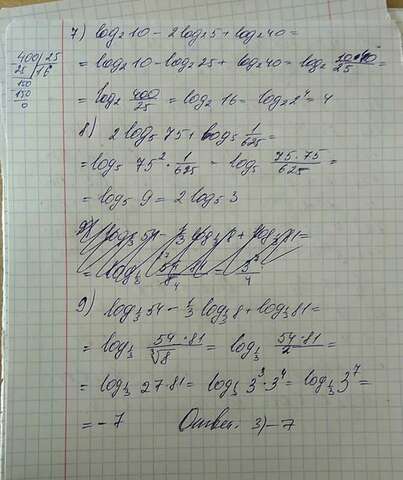 7) log₂10 − 2log₂5 + log₂40 =
= log₂10 − log₂25 + log₂40 = log₂ (10·40)/25 =
400 | 25
25 | 16
150
150
0
= log₂ 400/25 = log₂16 = log₂2⁴ = 4
8) 2log₅75 + log₅ 1/625 =
= log₅ 75² · 1/625 = log₅ (75·75)/625 =
= log₅ 9 = 2log₅3
9) log_{1/3} 54 − 1/3 log_{1/3} 8 + log_{1/3} 81 =
= log_{1/3} (54·81)/∛8 = log_{1/3} (54·81)/2 =
= log_{1/3} 27·81 = log_{1/3} 3³·3⁴ = log_{1/3} 3⁷ =
= −7 Ответ. 3) −7